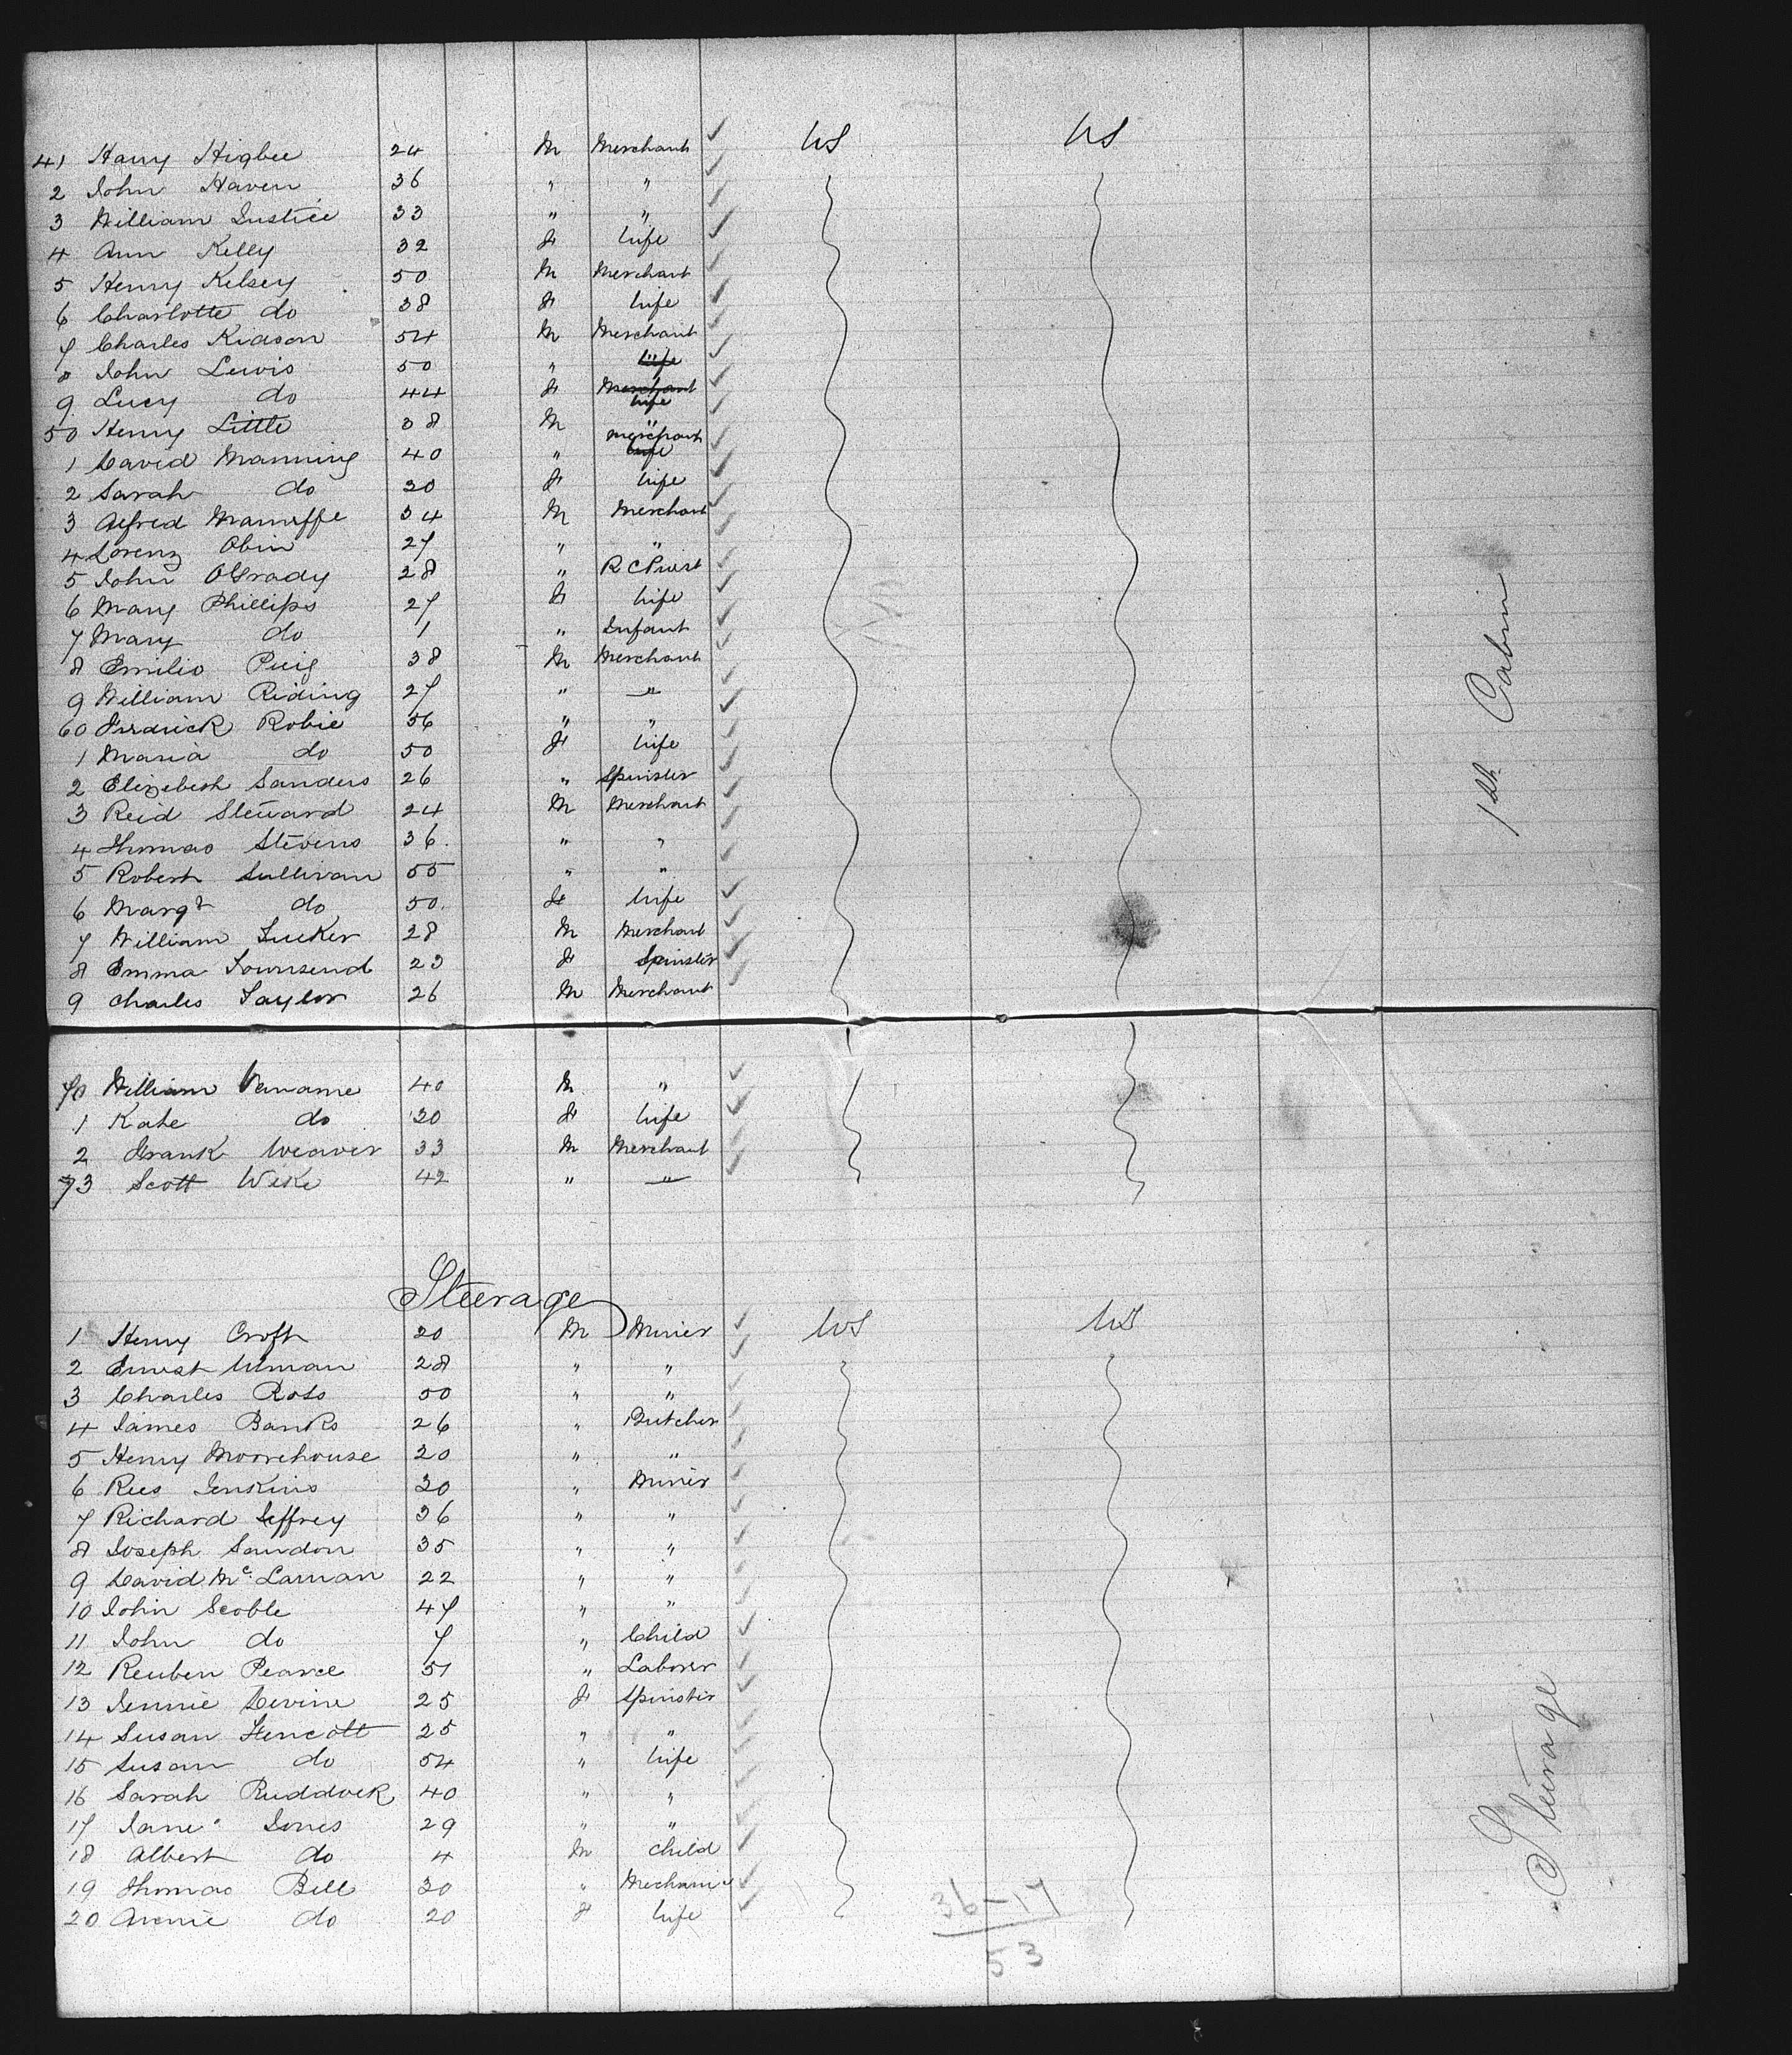 41 Harry Higbee 24 M Merchant US US
2 John Haven 36 " "
3 William Justice 33 " "
4 Ann Kelly 32 F Wife
5 Henry Kelsey 50 M Merchant
6 Charlotte do 38 F Wife
7 Charles Kidson 54 M Merchant
8 John Lewis 50 " "
9 Lucy do 44 F Merchant Wife
50 Henry Little 38 M "
1 David Manning 40 " merchant Wife
2 Sarah do 30 F Wife
3 Alfred 34 M Merchant
4 Lorenz Obin 27 " "
5 John OGrady 28 " R C Priest
6 Mary Phillips 27 F Wife
7 Mary do 1 " Infant
8 Emilio Puig 38 M Merchant
9 William Riding 27 " "
60 Fredrick Robie 56 " "
1 Maria do 50 F Wife
2 Elizebeth Sanders 26 " Spinster
3 Reid Steward 24 M Merchant
4 Thomas Stevens 36 " "
5 Robert Sullivan 55 " "
6 Margt do 50 F Wife
7 William Tucker 28 M Merchant
8 Emma Townsend 23 F Spinster
9 Charles Taylor 26 M Merchant
1st Cabin
70 William Vaname 40 M "
1 Kate do 30 F Wife
2 Frank Weaver 33 M Merchant
73 Scott Wike 42 " "
Steerage
1 Henry Croft 20 M Miner US US
2 Ernest Ulman 28 " "
3 Charles Ross 50 " "
4 James Banks 26 " Butcher
5 Henry Moorehouse 20 " "
6 Rees Jenkins 30 " Miner
7 Richard Jeffrey 36 " "
8 Joseph Sandon 35 " "
9 David Mc Larnan 22 " "
10 John Scoble 47 " "
11 John do 7 " Child
12 Reuben Pearce 51 " Laborer
13 Jennie Devine 25 F Spinster
14 Susan Hencott 25 " "
15 Susan do 54 " Wife
16 Sarah Ruddock 40 " "
17 Jane Jones 29 " "
18 Albert do 4 M Child
19 Thomas Bell 30 " Mechanic
20 Annie do 20 F Wife
Steerage
36-17
53